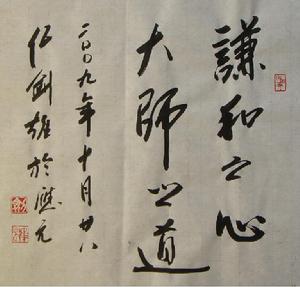 謙和之心
大師之道
二〇〇九年十月廿八
劍雄於元